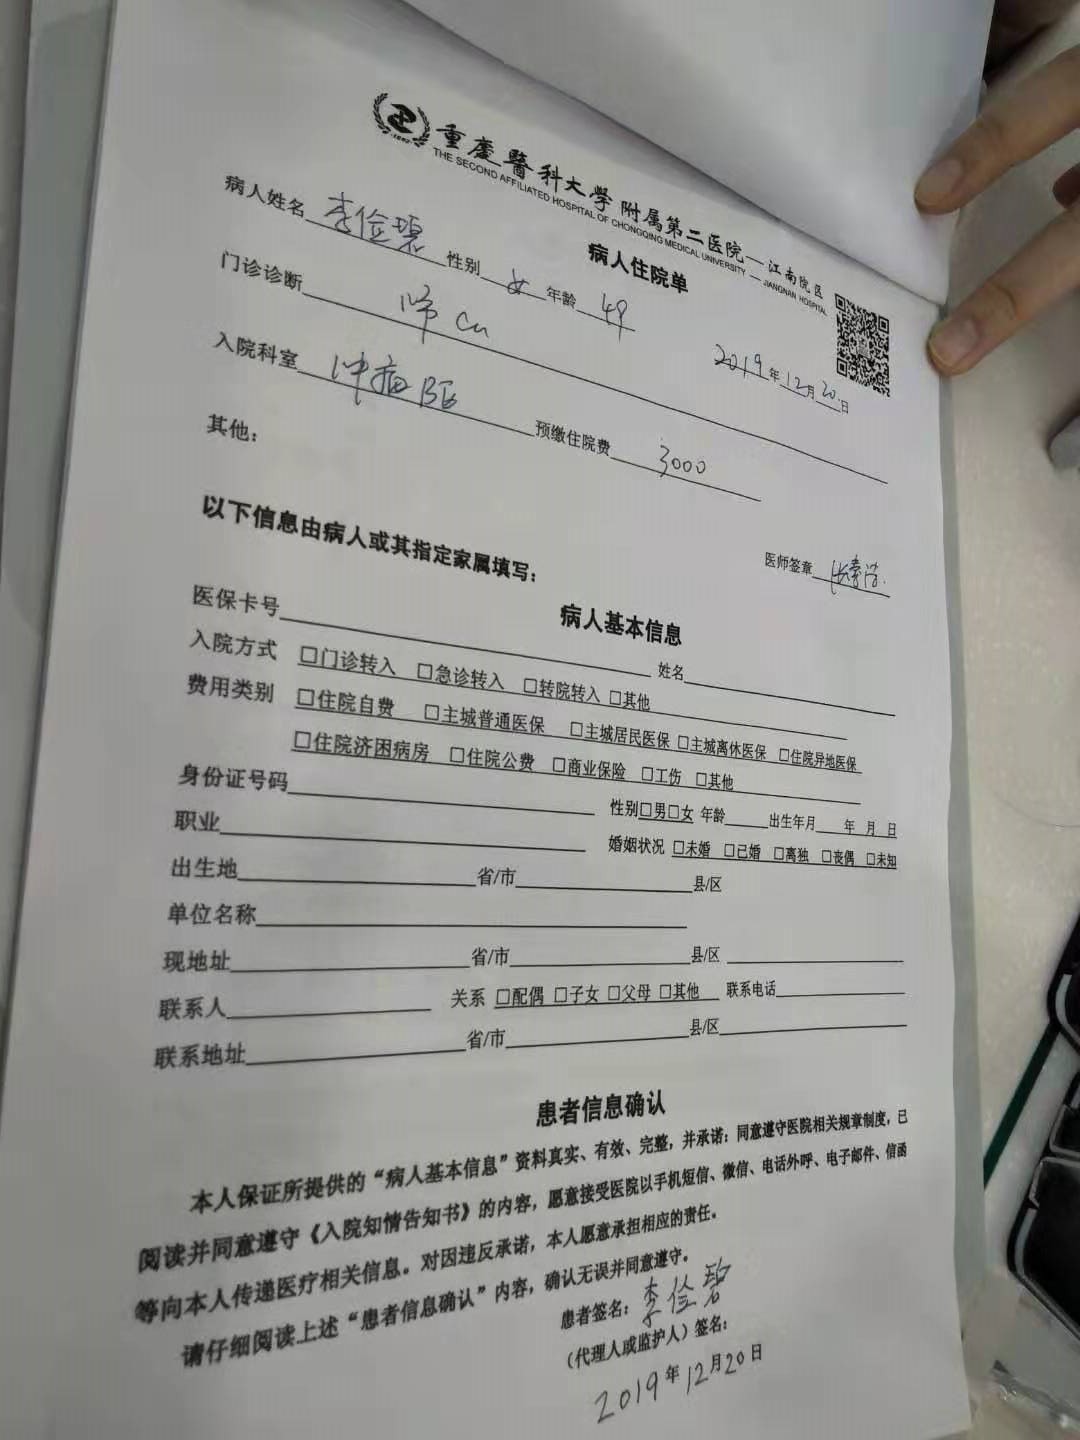 重慶醫科大學附属第二医院—江南院区
THE SECOND AFFILIATED HOSPITAL OF CHONGQING MEDICAL UNIVERSITY — JIANGNAN HOSPITAL
病人住院单
病人姓名 李俭碧 性别 女 年龄 49
2019年12月20日
门诊诊断 Ca
入院科室 肿瘤 预缴住院费 3000
其他：
医师签章
以下信息由病人或其指定家属填写：
病人基本信息
医保卡号 姓名
入院方式 □门诊转入 □急诊转入 □转院转入 □其他
费用类别 □住院自费 □主城普通医保 □主城居民医保 □主城离休医保 □住院异地医保
□住院济困病房 □住院公费 □商业保险 □工伤 □其他
身份证号码 性别□男□女 年龄 出生年月 年 月 日
职业 婚姻状况 □未婚 □已婚 □离独 □丧偶 □未知
出生地 省/市 县/区
单位名称
现地址 省/市 县/区
联系人 关系 □配偶 □子女 □父母 □其他 联系电话
联系地址 省/市 县/区
患者信息确认
本人保证所提供的“病人基本信息”资料真实、有效、完整，并承诺：同意遵守医院相关规章制度，已
阅读并同意遵守《入院知情告知书》的内容，愿意接受医院以手机短信、微信、电话外呼、电子邮件、信函
等向本人传递医疗相关信息。对因违反承诺，本人愿意承担相应的责任。
请仔细阅读上述“患者信息确认”内容，确认无误并同意遵守。
患者签名：李俭碧
（代理人或监护人）签名：
2019年12月20日